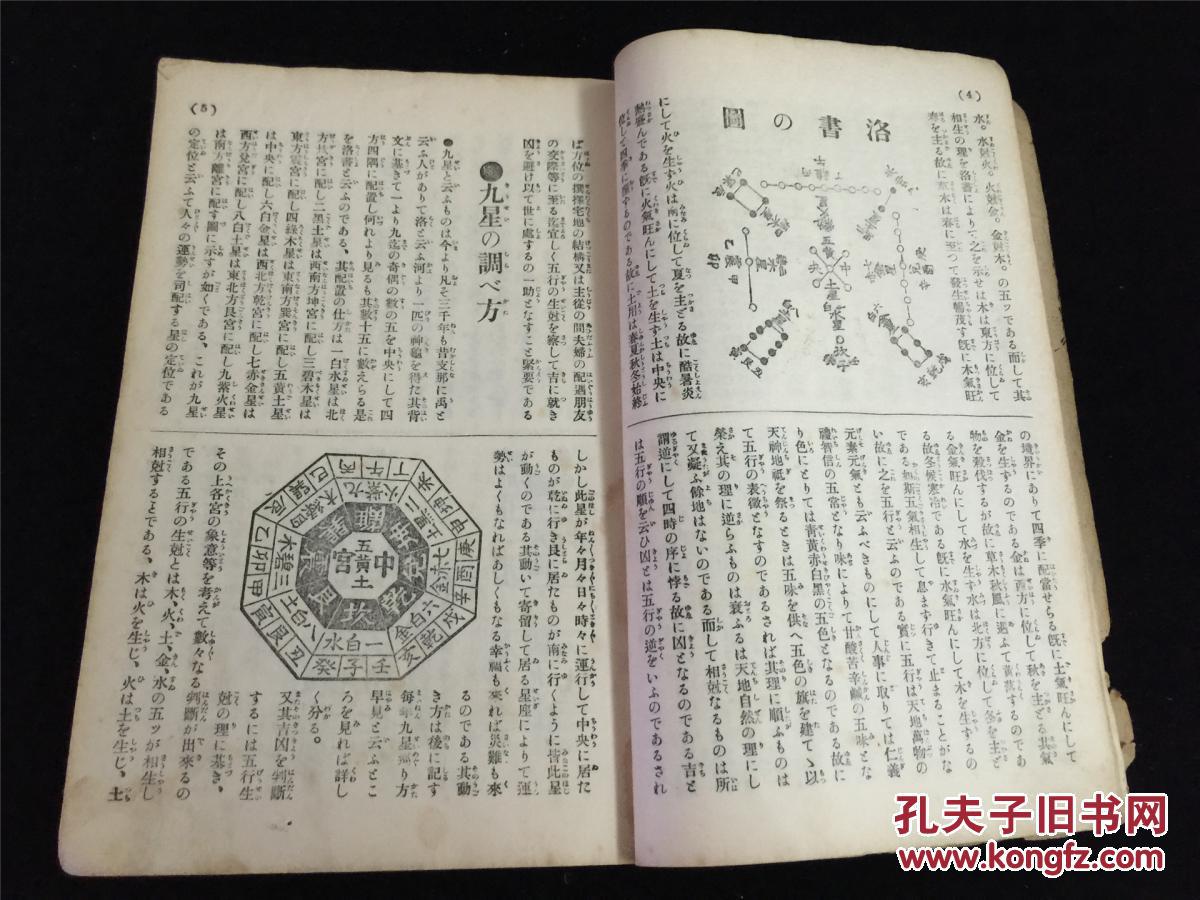 (4)
水。水尅火。火尅金。金尅木。の五ッである而して其
相生の理を洛書によりて之を示せは木は東方に位して
春を主る故に草木は春に至つて發生暢茂す旣に木氣旺
洛書の圖
にして火を生ず火は南に位して夏を主どる故に酷暑炎
熱甚んである旣に火氣旺んにして土を生ず土は中央に
位して四季に旺ずるのである故に土用は春夏秋冬始終
の境界にありて四季に配當せらる旣に土氣旺んにして
金を生ずるのである金は西方に位して秋を主どる其氣
物を殺伐するが故に草木秋風に遇ふて黃落するのであ
る金氣旺んにして水を生ず水は北方に位して冬を主ど
る故冬候寒冷である旣に水氣旺んにして木を生ずるの
である如斯五氣相生して息まず行きて止まることがな
い故に之を五行と云ふのである實に五行は天地萬物の
元素元氣とも云ふべきものにして人事に取りては仁義
禮智信の五常となり味によりて甘酸苦辛鹹の五味とな
り色にとりては靑黃赤白黑の五色となるのである故に
天神地祗を祭るときは五味を供へ五色の旗を建てゝ以
て五行の表徵となすのであるされば其理に順ふものは
榮え其の理に逆らふものは衰ふるは天地自然の理にし
て又疑ふ餘地はないのである而して相尅なるものは所
謂道にして四時の序に悖る故に凶となるのである吉と
は五行の順を云ひ凶とは五行の逆をいふのであるされ
(5)
ば方位の撰擇宅地の結構又は主從の間夫婦の配遇朋友
の交際等に至る迄宜しく五行の生尅を察して吉に就き
凶を避け以て世に處するの一助となすこと緊要である
●九星の調べ方
●九星と云ふものは今より凡そ三千年も昔支那に禹と
云ふ人がありて洛と云ふ河より一匹の神龜を得た其背
文に基きて一より九迄の奇偶の數の五を中央にして四
方四隅に配置し何れより見るも其數十五に數えらる是
を洛書と云ふのである、其配置の仕方は一白水星は北
方坎宮に配し二黑土星は西南方坤宮に配し三碧木星は
東方震宮に配し四綠木星は東南方巽宮に配し五黃土星
は中央に配し六白金星は西北方乾宮に配し七赤金星は
西方兌宮に配し八白土星は東北方艮宮に配し九紫火星
は南方離宮に配す圖に示すが如くである、これが九星
の定位と云ふて人々の運勢を司配する星の定位である
しかし此星が年々月々日々時々に運行して中央に居た
ものが乾に行き艮に居たものが南に行くように皆此星
が動くのである其動いて寄留して居る星座によりて運
勢はよくもなればあしくもなる幸福も來れば災難も來
るのである其動
き方は後に記す
每年九星操り方
早見と云ふとこ
ろを見れば詳し
く分る。
又其吉凶を判斷
するには五行生
尅の理に基き、
その上各宮の象意等を考えて數々なる判斷が出來るの
である五行の生尅とは木、火、土、金、水の五ッが相生し
相尅することである、木は火を生じ、火は土を生じ、土
中宮
五黃土
坎
艮
乾
離
一白水
九紫火
八白土
三碧木
七赤金
六白金
壬子癸
丑艮寅
甲卯乙
辰巽巳
丙午丁
未坤申
庚酉辛
戌乾亥
孔夫子旧书网
www.kongfz.com